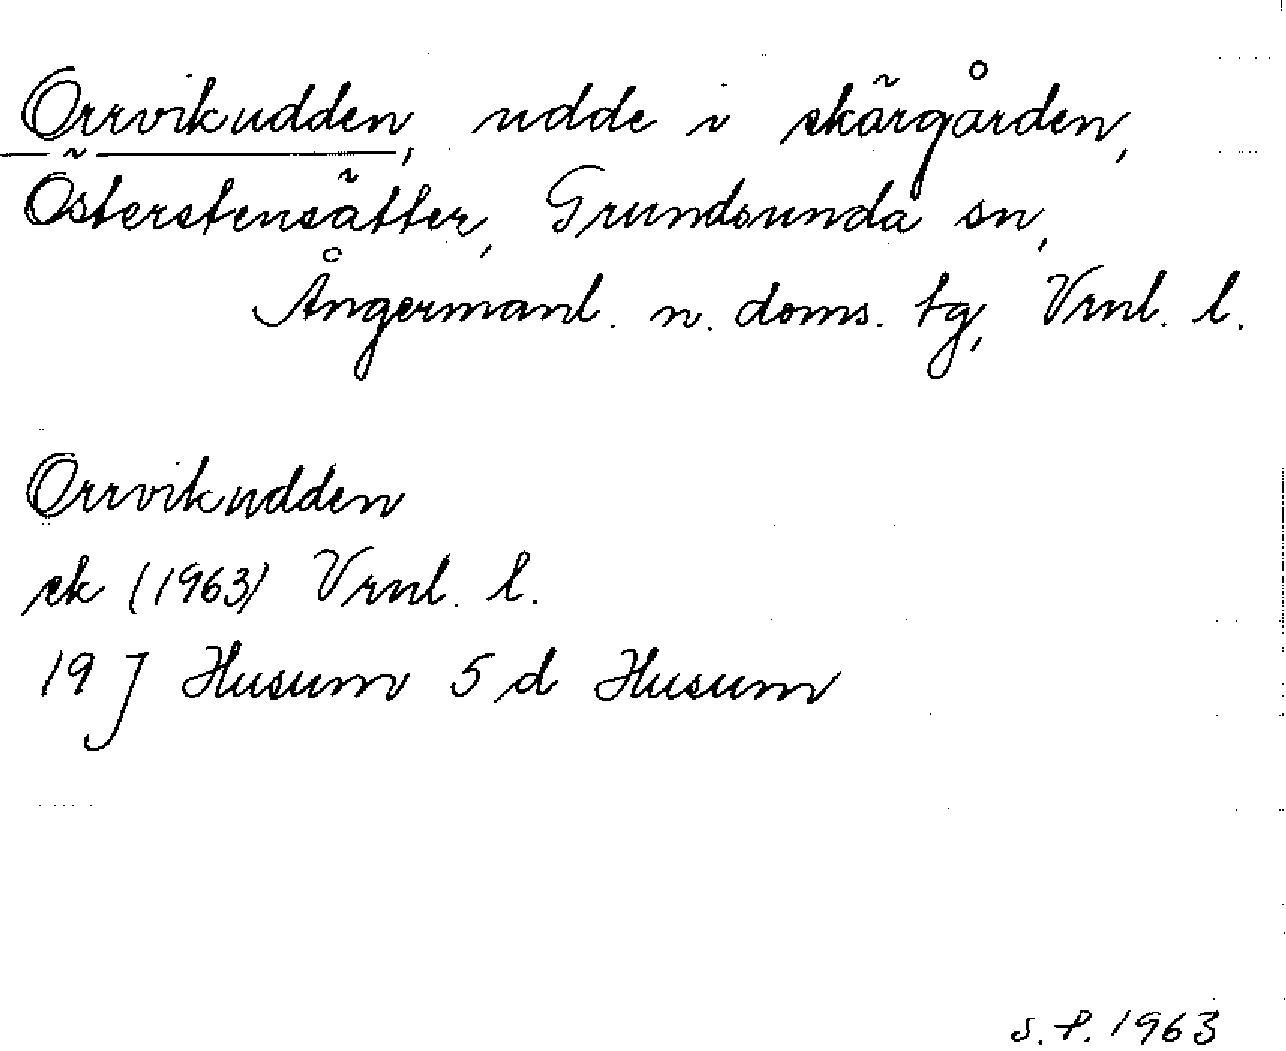 Orrvikudden, udde i skärgården,
Österstensätter, Grundsunda sn,
Ångermanl. n. doms. tg, Vrnl. l.
Orrvikudden
ek (1963) Vrnl. l.
19 J Husum 5 d Husum
S. P. 1963